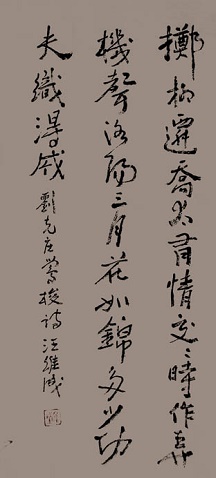 擲柳遷喬太有情交〻時作弄
機聲洛陽三月花如錦多少功
夫織得成
劉克庄鶯梭詩 汪維成